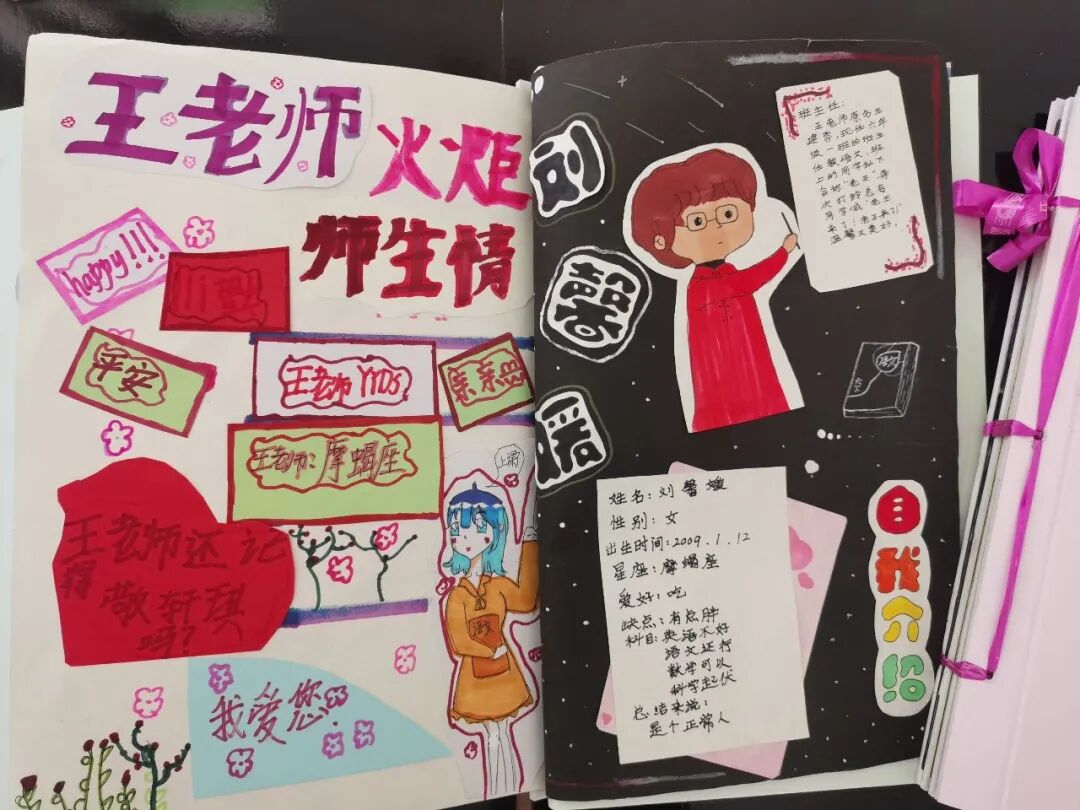 王老师
火炬
师生情
happy!!!
平安
王老师 YYDS
王老师:摩羯座
上课
语文
王老师还记
得
敬轩琪
吗?
我爱您
刘
馨
暖
班主任:
王老师原名王
建香,现任六年
级一班的班主
任教语文,班
上的同学私下
会称“老王”每
次打铃总有
同学喊“老王
来了!老王来了!”
温馨又美好。
语文
姓名:刘馨媛
性别:女
出生时间:2009.1.12
星座:摩羯座
爱好:吃
缺点:有点胖
科目:英语不好
语文还行
数学可以
科学起伏
总结来说:
是个正常人
自我介绍